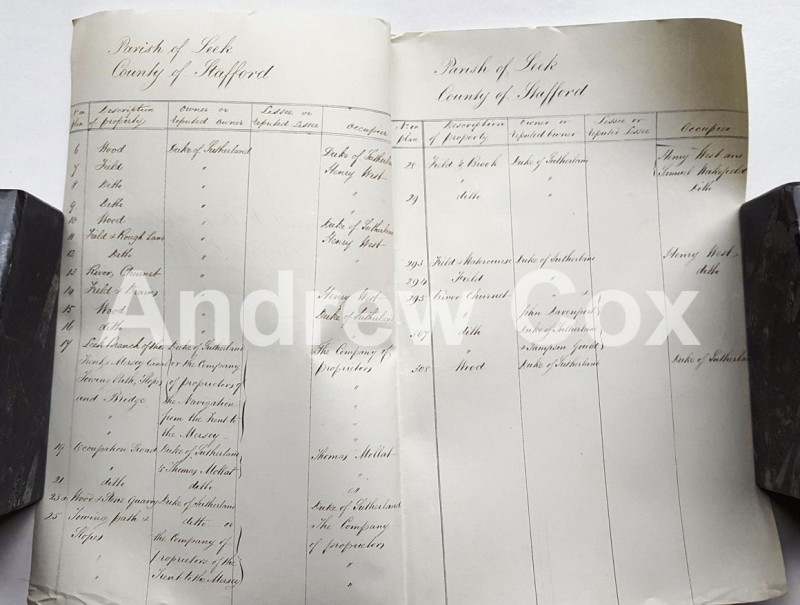 Parish of Leek
County of Stafford
No on plan Description of property Owner or reputed Owner Lessee or reputed Lessee Occupier
6 Wood Duke of Sutherland Duke of Sutherland
7 Field " Henry West
8 Ditto " "
9 Ditto " "
10 Wood " Duke of Sutherland
11 Field & Rough Land " Henry West
12 ditto " "
13 River Churnet "
14 Field & Drains " Henry West
15 Wood " Duke of Sutherland
16 ditto "
17 Leek branch of the Duke of Sutherland The Company of
Trent & Mersey Canal or the Company proprietors
Towing Path, Slopes of proprietors of "
and Bridge the Navigation "
" from the Trent to "
" the Mersey "
19 Occupation Road Duke of Sutherland Thomas Mollat
" & Thomas Mollat "
21 ditto ditto "
23a Wood & Stone Quarry Duke of Sutherland Duke of Sutherland
25 Towing path & ditto or The Company
Slopes the Company of of proprietors
" proprietors of the "
" Trent to the Mersey "
Parish of Leek
County of Stafford
No on plan Description of property Owner or reputed Owner Lessee or reputed Lessee Occupier
28 Field & Brook Duke of Sutherland Henry West and
" " Samuel Wakefield
29 ditto " Ditto
293 Field & Watercourse Duke of Sutherland Henry West
294 Field " ditto
295 River Churnet "
John Davenport
307 ditto Duke of Sutherland
& Sampson Gould
308 Wood Duke of Sutherland Duke of Sutherland
Andrew Cox